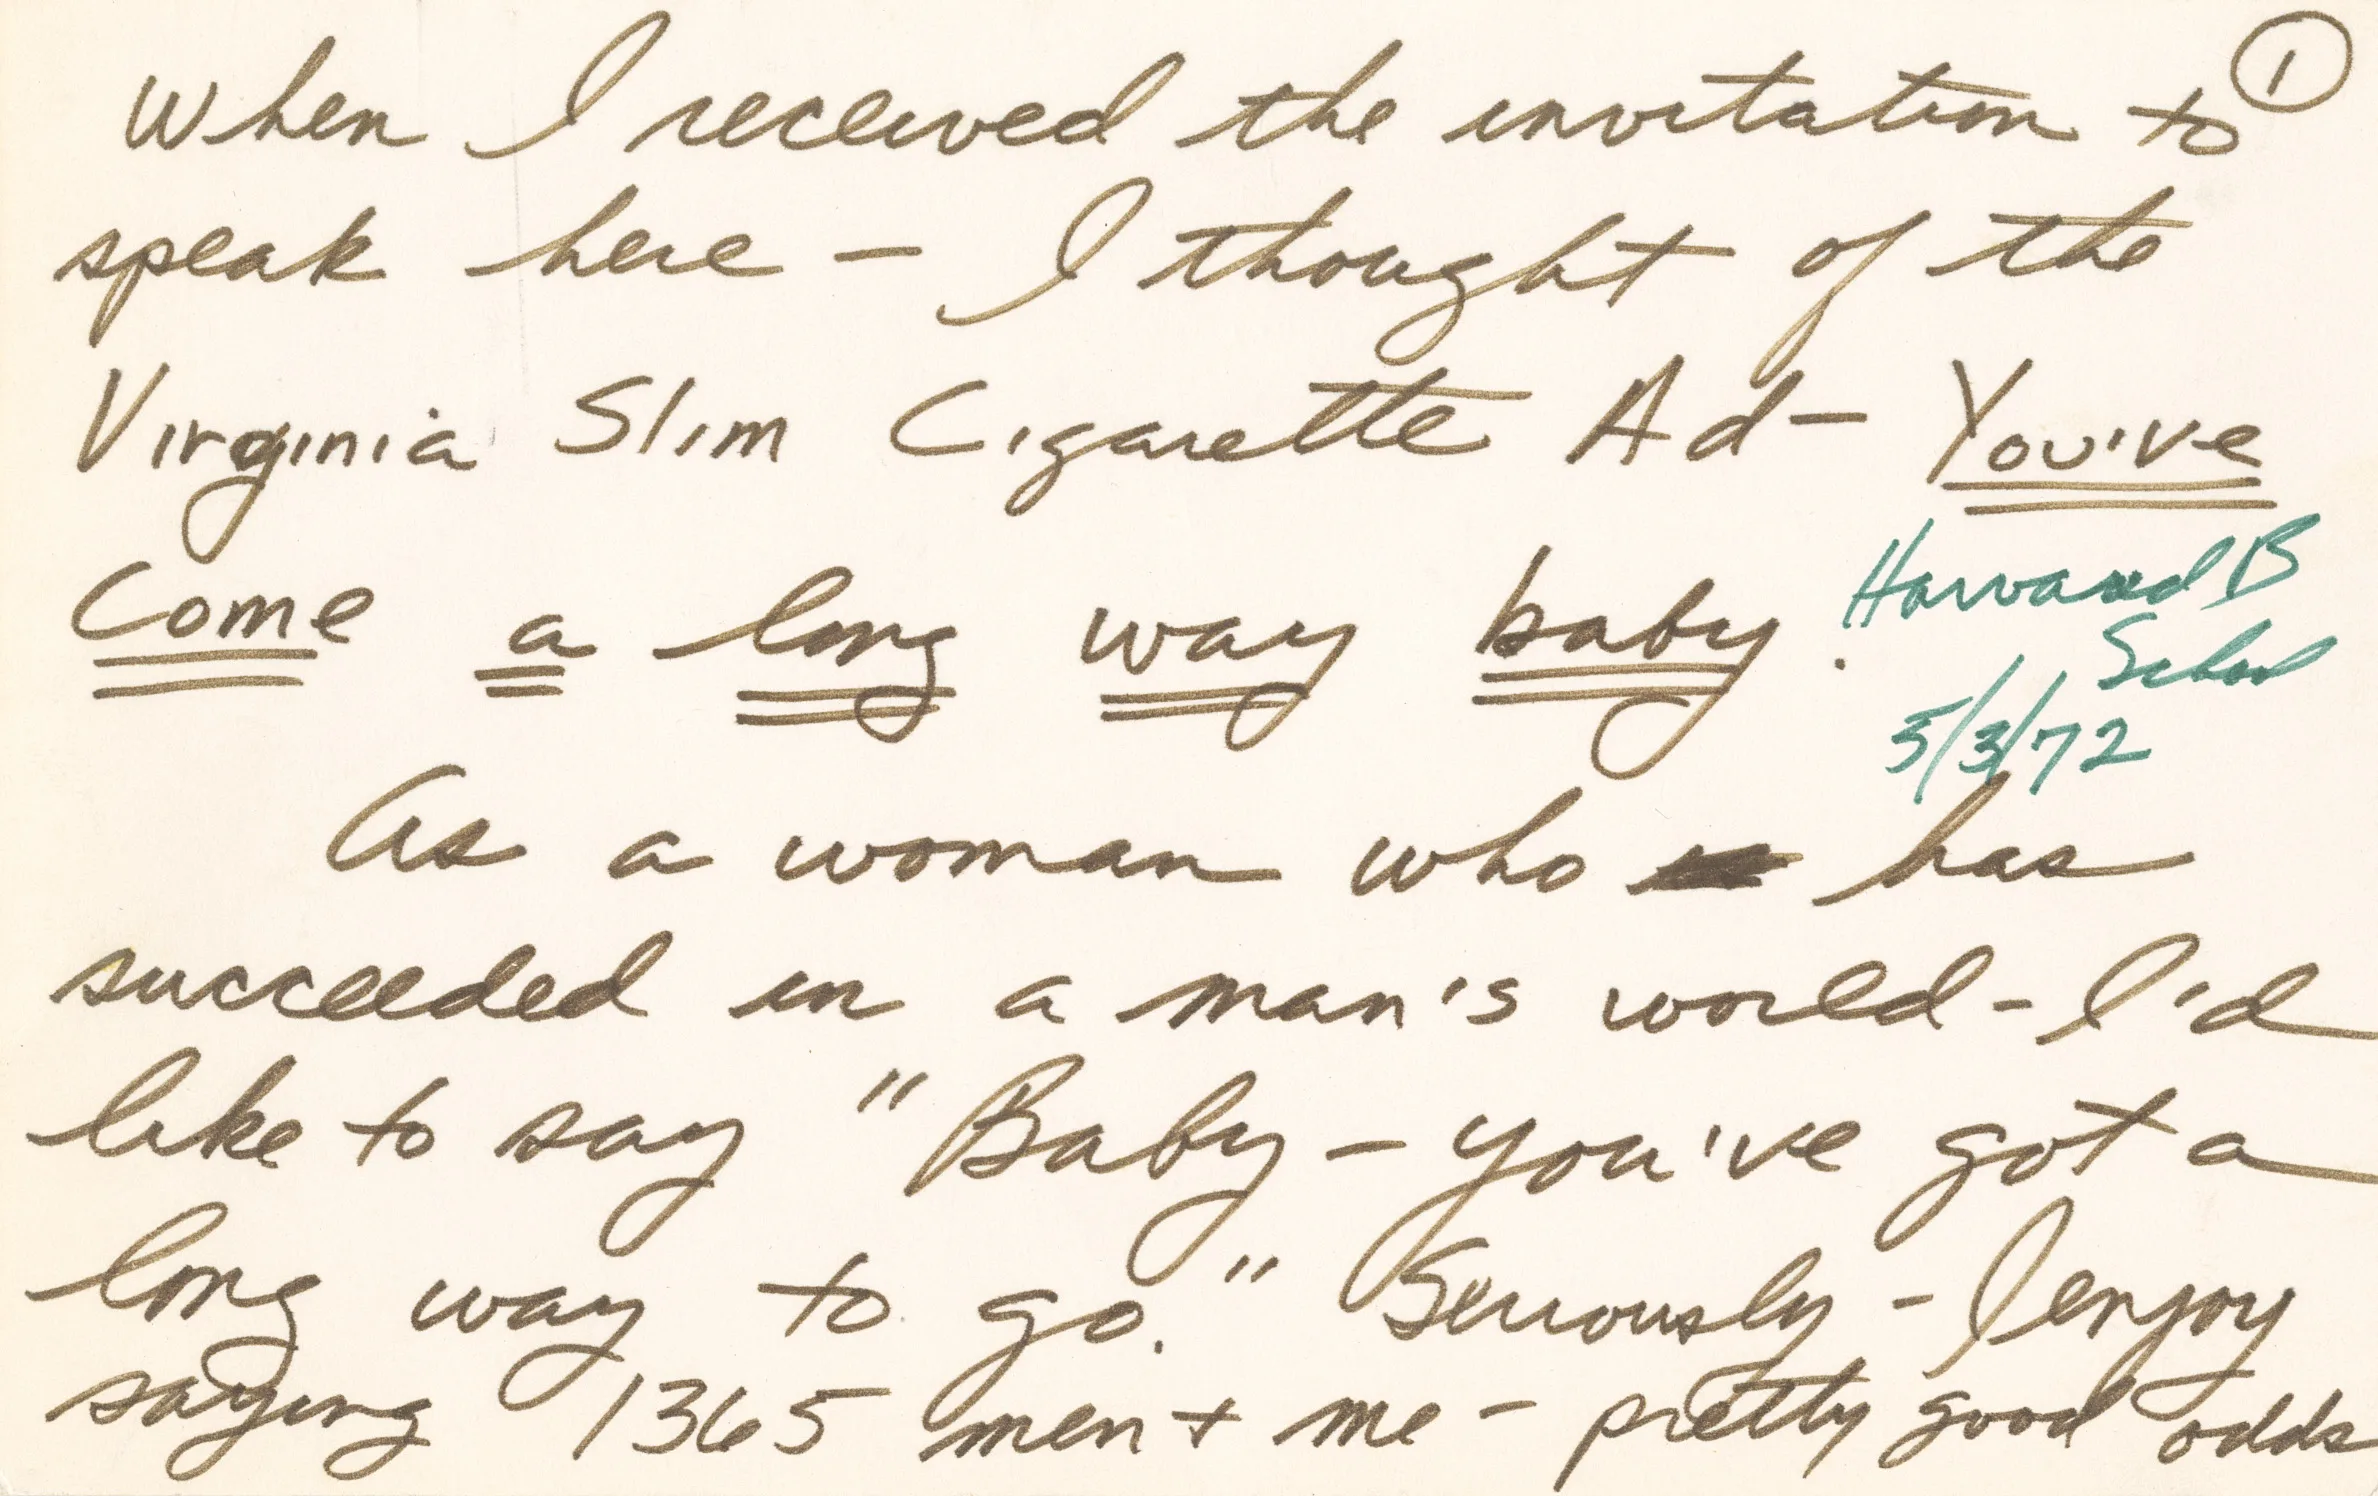 When I received the invitation to ①
speak here — I thought of the
Virginia Slim Cigarette Ad — You've
Come a long way baby.
Harvard B
School
5/3/72
As a woman who has
succeeded in a man's world - I'd
like to say "Baby — you've got a
long way to go." Seriously - I enjoy
saying 1365 men + me - pretty good odds